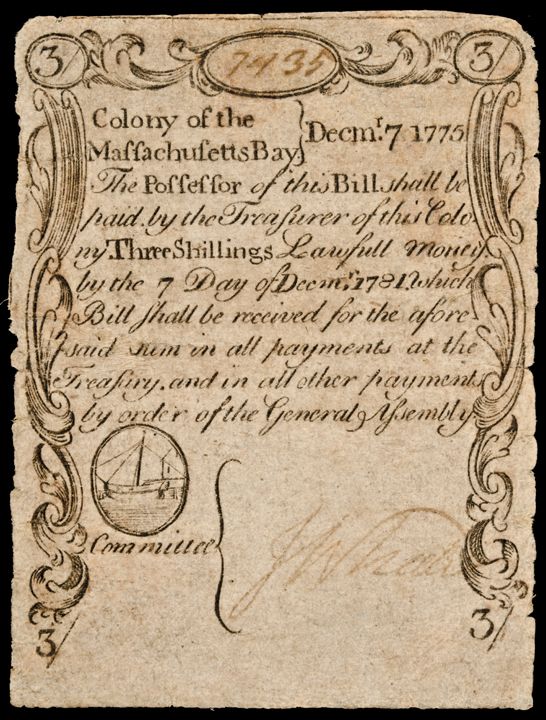 3/ 7435 3/
Colony of the
Maſſachusetts Bay } Decmr. 7 1775
The Poſſeſſor of this Bill shall be
paid. by the Treaſurer of this Colo
ny. Three Shillings Lawfull Money.
by the 7 Day of Decmr. 1781. which
Bill ſhall be received for the afore-
said sum in all payments at the
Treaſury. and in all other payments
by order of the General Aſsembly
Committee
3/ 3/